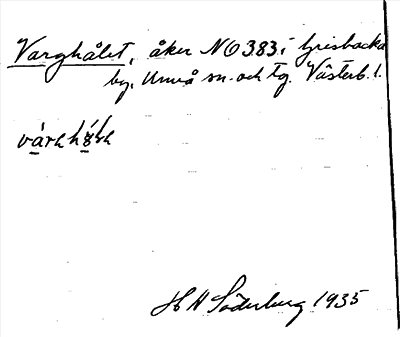 Varghålet, åker No 383 i Grisbacka
by, Umeå sn. och tg. Västerb. l.
H N Söderberg 1935